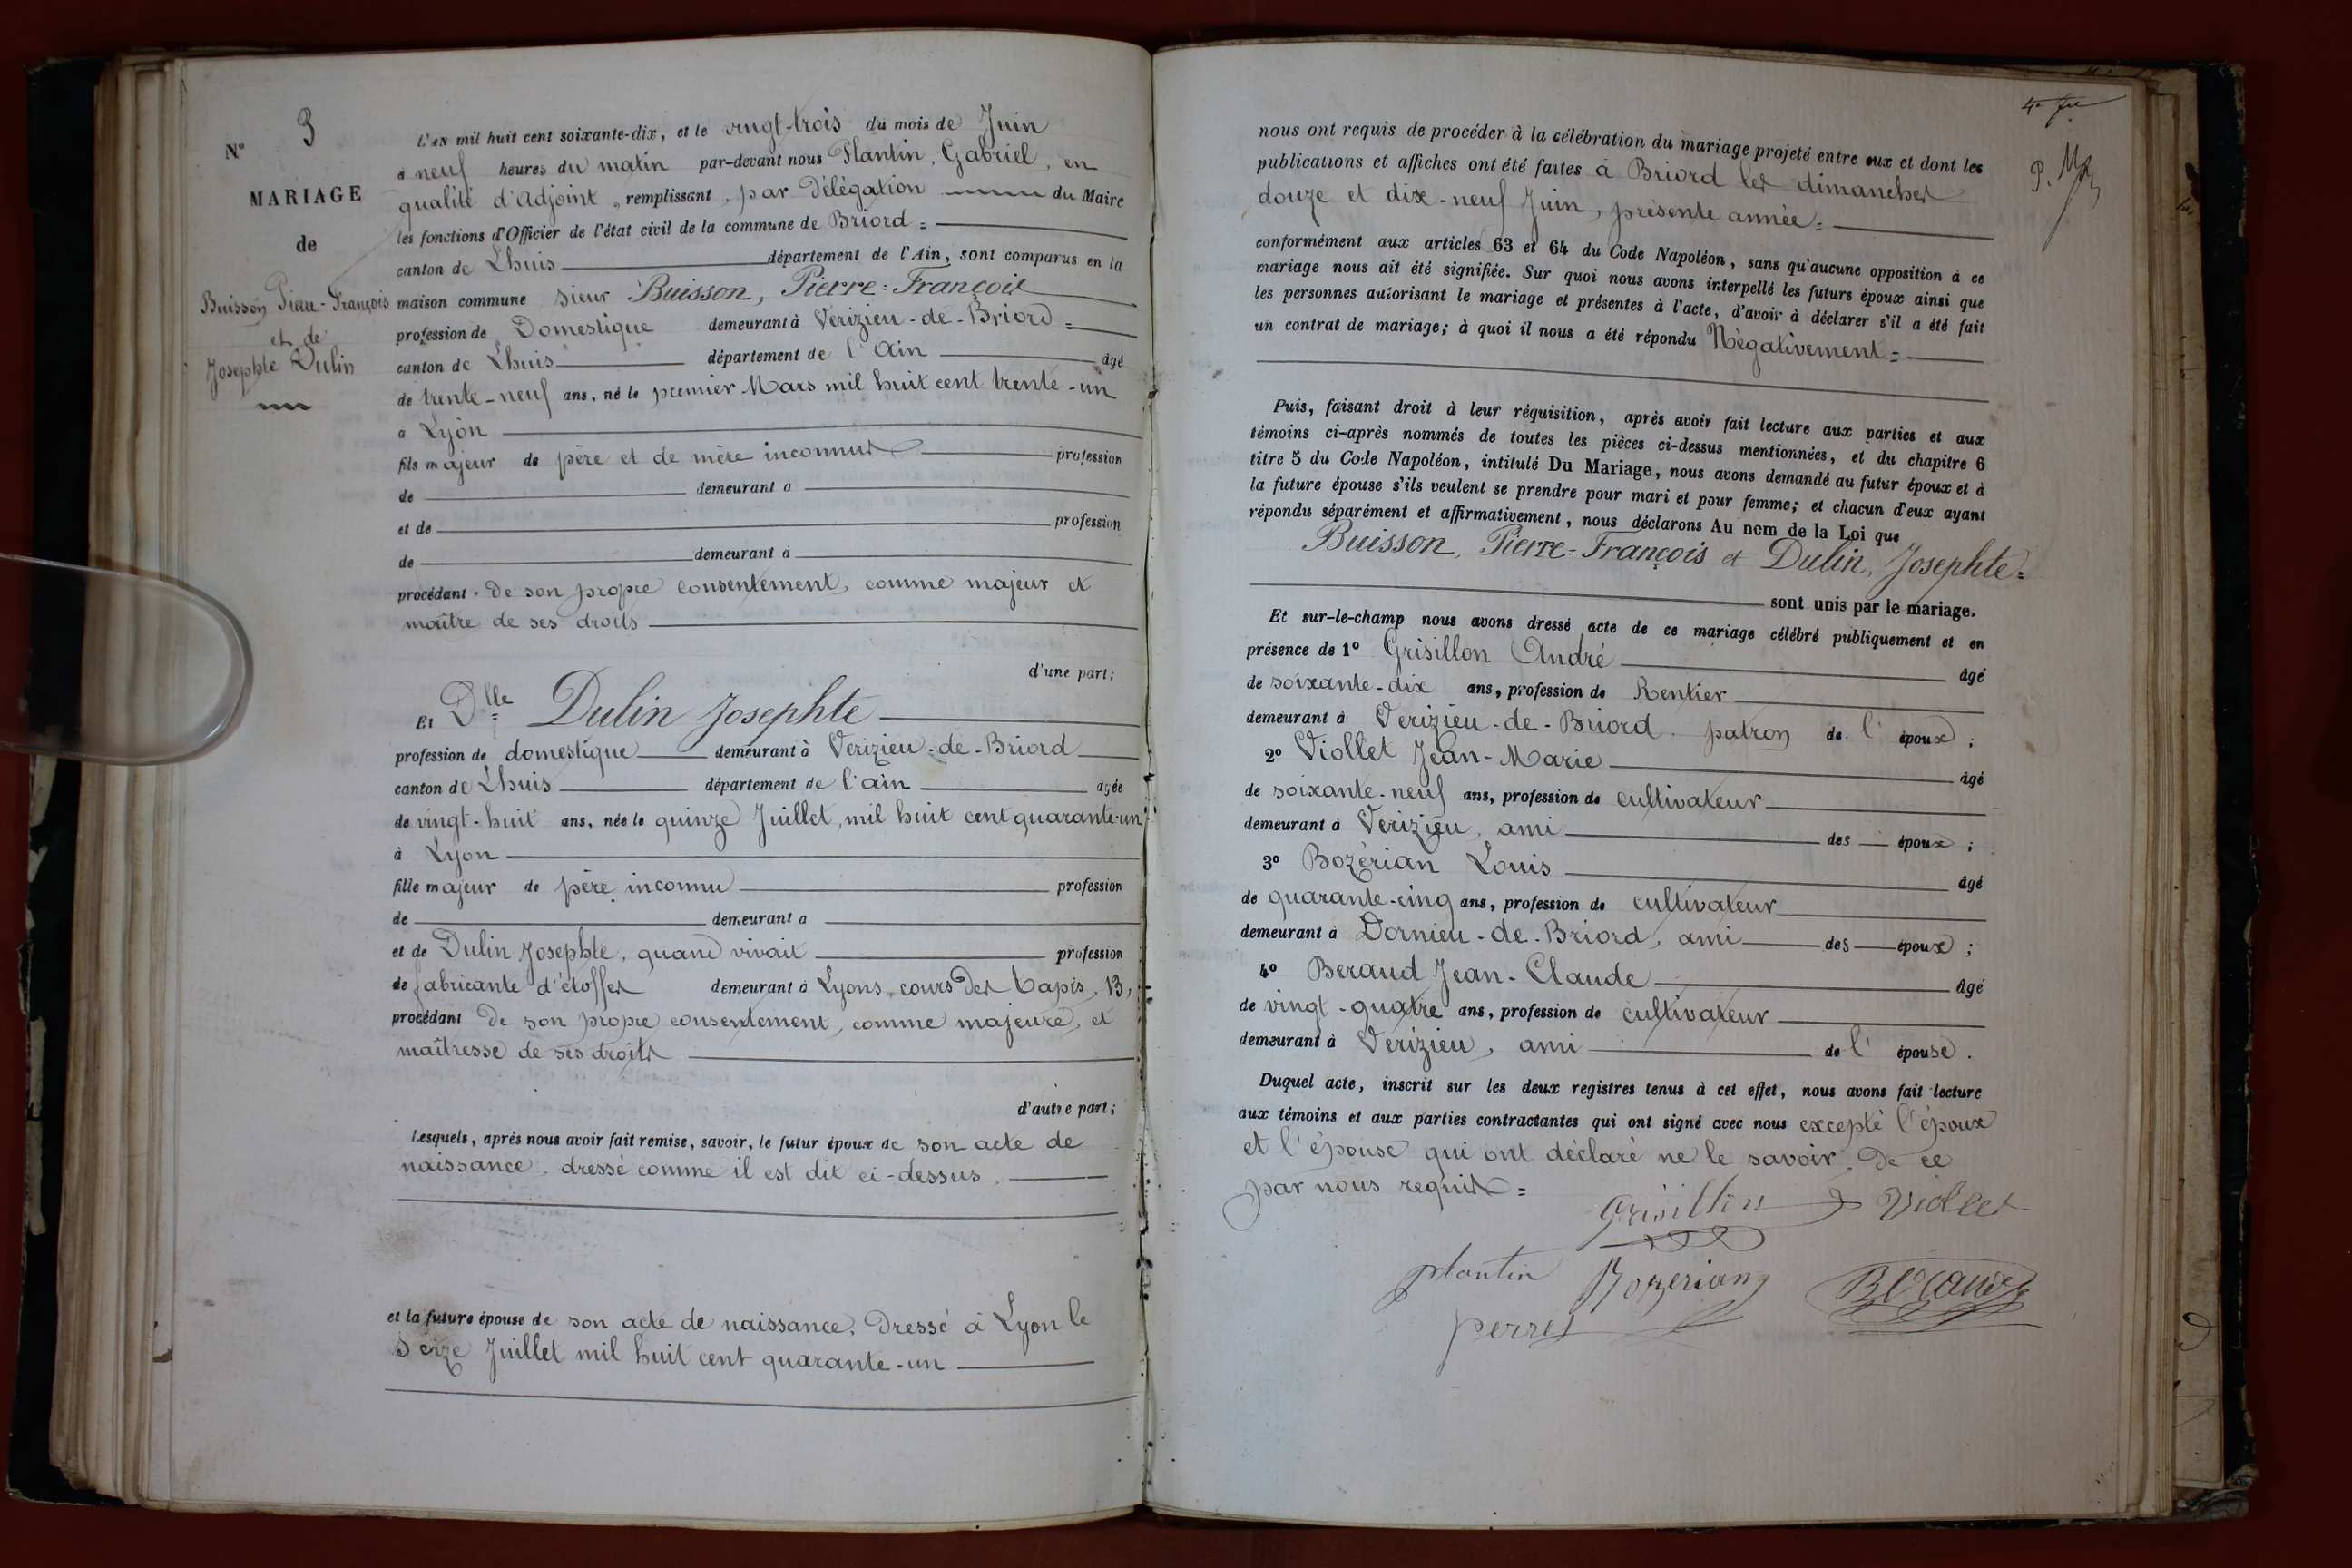 N° 3
MARIAGE
de
Buisson Pierre-François
et de
Josephte Dulin
L'AN mil huit cent soixante-dix, et le vingt-trois du mois de Juin
à neuf heures du matin par-devant nous Plantin, Gabriel, en
qualité d'Adjoint, remplissant, par Délégation du Maire
les fonctions d'Officier de l'état civil de la commune de Briord =
canton de Lhuis département de l'Ain, sont comparus en la
maison commune sieur Buisson, Pierre=François
profession de Domestique demeurant à Verizieu-de-Briord =
canton de Lhuis département de l'Ain âgé
de trente-neuf ans, né le premier Mars mil huit cent trente-un
à Lyon
fils majeur de père et de mère inconnus profession
de demeurant à
et de profession
de demeurant à
procédant de son propre consentement, comme majeur et
maître de ses droits
d'une part;
Et Dlle Dulin Josephte
profession de domestique demeurant à Verizieu-de-Briord
canton de Lhuis département de l'ain âgée
de vingt-huit ans, née le quinze Juillet, mil huit cent quarante-un
à Lyon
fille majeur de père inconnu profession
de demeurant à
et de Dulin Josephte, quand vivait profession
de fabricante d'étoffes demeurant à Lyons, cours des Tapis, 13,
procédant de son propre consentement, comme majeure, et
maîtresse de ses droits
d'autre part;
Lesquels, après nous avoir fait remise, savoir, le futur époux de son acte de
naissance, dressé comme il est dit ci-dessus,
et la future épouse de son acte de naissance, dressé à Lyon le
Seize Juillet mil huit cent quarante-un
nous ont requis de procéder à la célébration du mariage projeté entre eux et dont les
publications et affiches ont été faites à Briord les dimanches
douze et dix-neuf Juin, présente année =
conformément aux articles 63 et 64 du Code Napoléon, sans qu'aucune opposition à ce
mariage nous ait été signifiée. Sur quoi nous avons interpellé les futurs époux ainsi que
les personnes autorisant le mariage et présentes à l'acte, d'avoir à déclarer s'il a été fait
un contrat de mariage; à quoi il nous a été répondu Négativement =
Puis, faisant droit à leur réquisition, après avoir fait lecture aux parties et aux
témoins ci-après nommés de toutes les pièces ci-dessus mentionnées, et du chapitre 6
titre 5 du Code Napoléon, intitulé Du Mariage, nous avons demandé au futur époux et à
la future épouse s'ils veulent se prendre pour mari et pour femme; et chacun d'eux ayant
répondu séparément et affirmativement, nous déclarons Au nom de la Loi que
Buisson, Pierre=François et Dulin, Josephte =
sont unis par le mariage.
Et sur-le-champ nous avons dressé acte de ce mariage célébré publiquement et en
présence de 1° Grisillon André âgé
de soixante-dix ans, profession de Rentier
demeurant à Verizieu-de-Briord patron de l'époux;
2° Viollet Jean-Marie âgé
de soixante-neuf ans, profession de cultivateur
demeurant à Verizieu, ami des époux;
3° Bozérian Louis âgé
de quarante-cinq ans, profession de cultivateur
demeurant à Dornieu-de-Briord, ami des époux;
4° Beraud Jean-Claude âgé
de vingt-quatre ans, profession de cultivateur
demeurant à Verizieu, ami de l'épouse.
Duquel acte, inscrit sur les deux registres tenus à cet effet, nous avons fait lecture
aux témoins et aux parties contractantes qui ont signé avec nous excepté l'époux
et l'épouse qui ont déclaré ne le savoir, de ce
par nous requis =
Grisillon Viollet
plantin Bozerian Beraud
perret